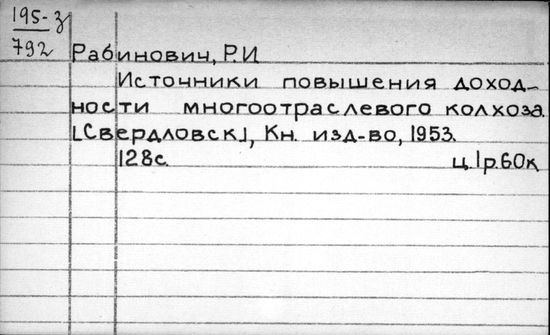 195-з
792
Рабинович, Р.И
Источники повышения доход-
ности многоотраслевого колхоза.
[Свердловск], Кн. изд-во, 1953.
128с. ц.1р.60к